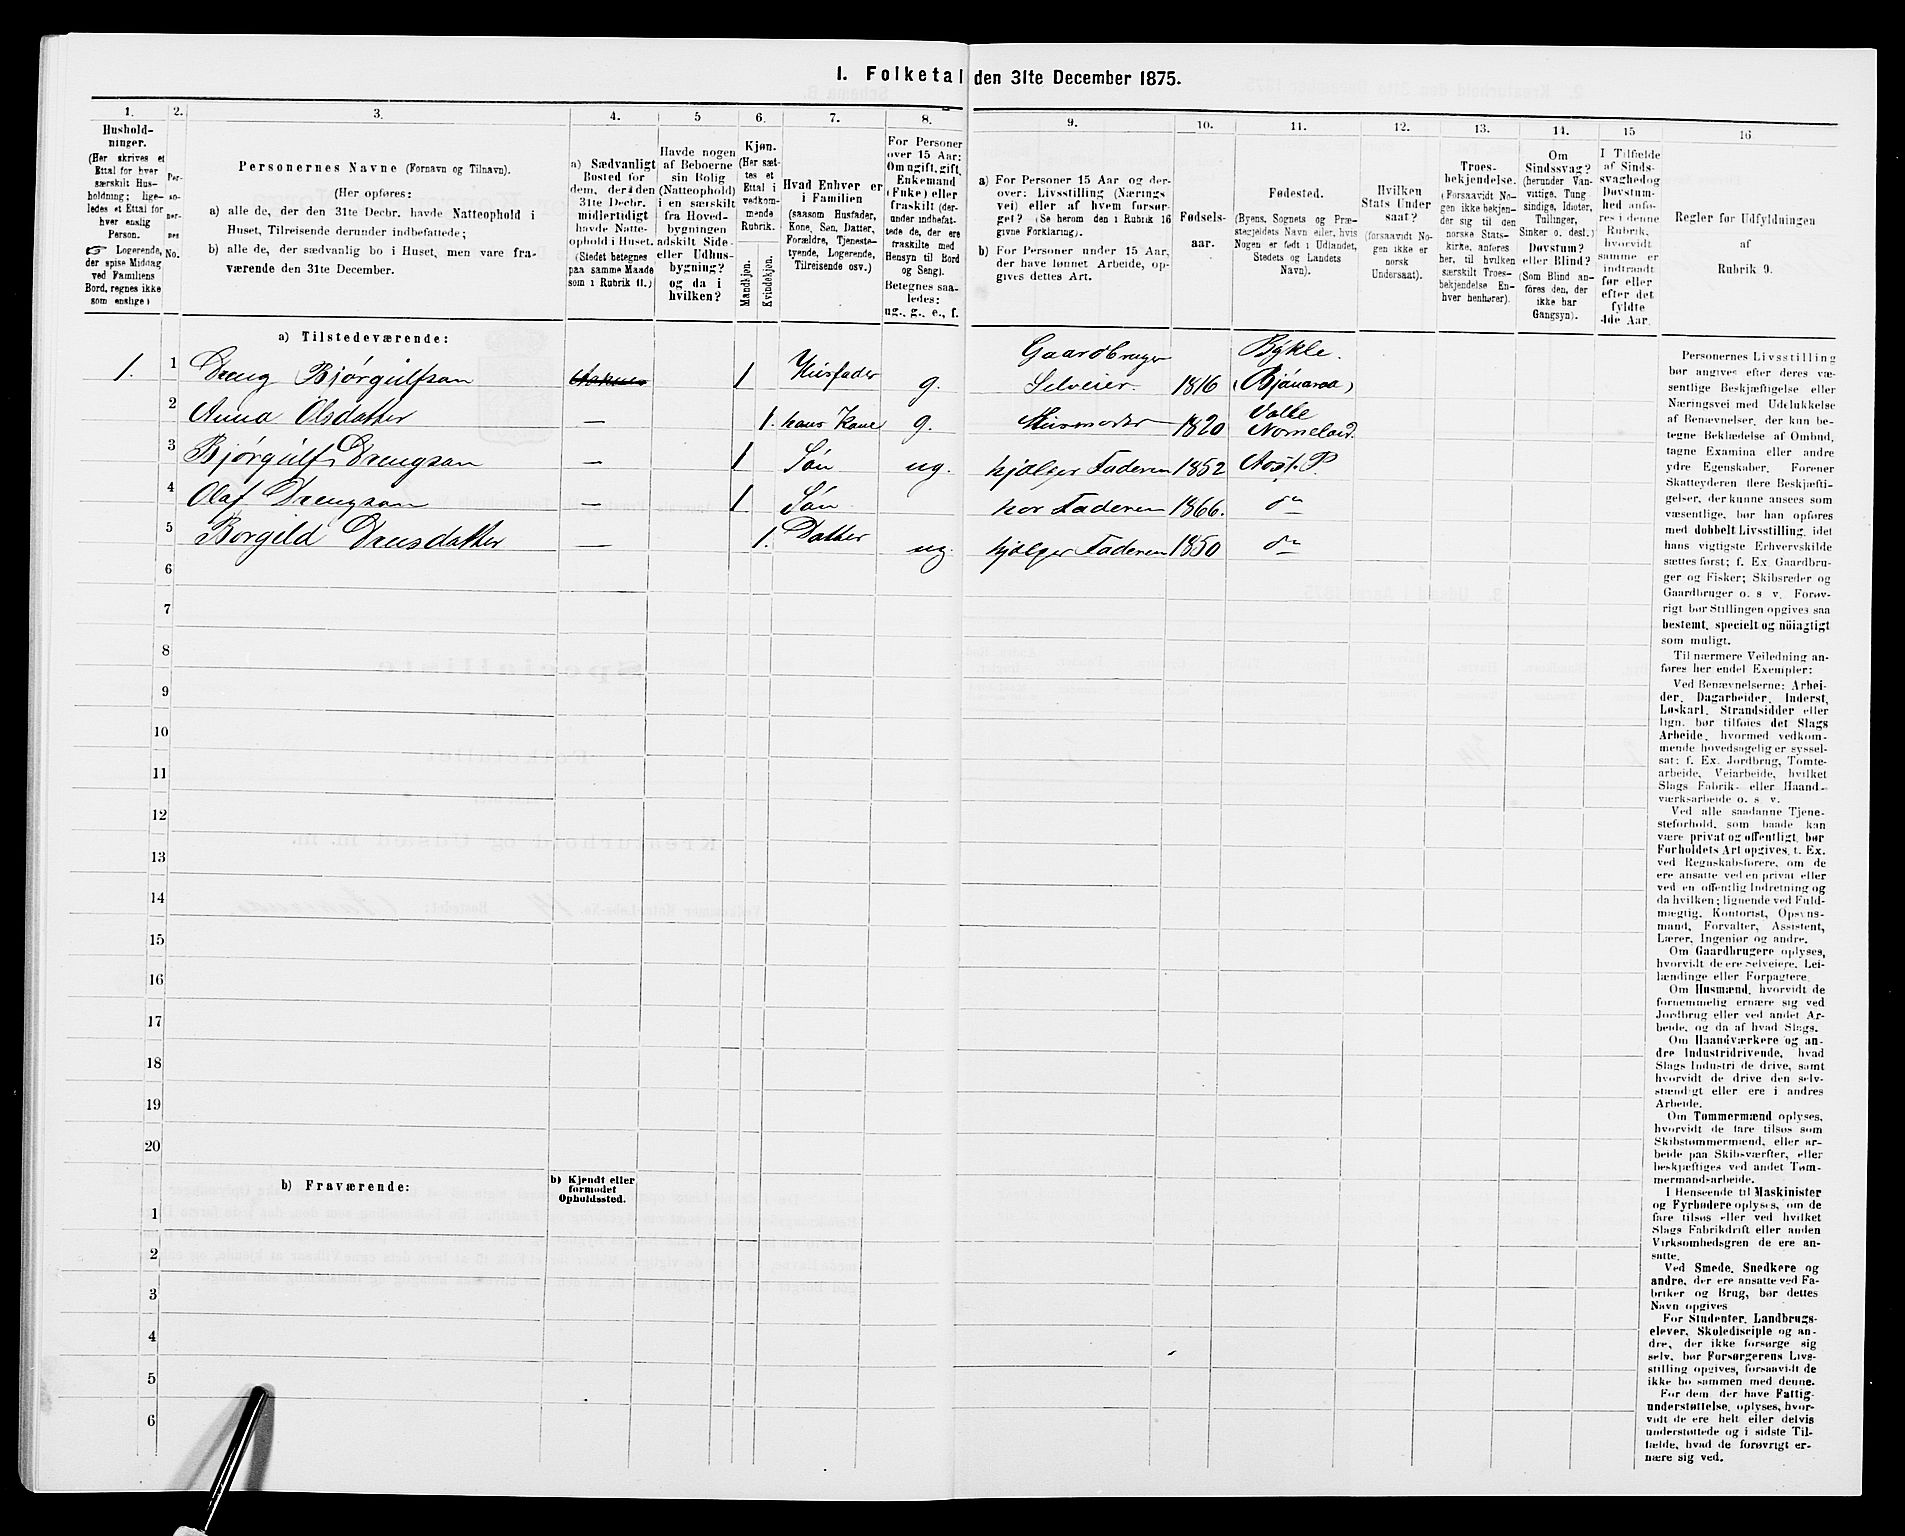 I. Folketal den 31te December 1875.
1.
Hushold-
ninger.
(Her skrives et
Ettal for hver
særskilt Hus-
holdning; lige-
ledes et Ettal for
hver enslig
Person.
☞ Logerende,
der spise Middag
ved Familiens
Bord, regnes ikke
som enslige)
2.
Per-
so-
ner-
nes
No.
3.
Personernes Navne (Fornavn og Tilnavn).
(Her opføres:
a) alle de, der den 31te Decbr. havde Natteophold i
Huset, Tilreisende derunder indbefattede;
b) alle de, der sædvanlig bo i Huset, men vare fra-
værende den 31te December.
4.
a) Sædvanligt
Bosted for
dem, der den
31te Decbr.
midlertidigt
havde Natte-
ophold i Huset.
(Stedet betegnes
paa samme Maade
som i Rubrik 11.)
5
Havde nogen
af Beboerne
sin Bolig
(Natteophold)
i en særskilt
fra Hoved-
bygningen
adskilt Side-
eller Udhus-
bygning?
og da i
hvilken?
6.
Kjøn.
(Her sæt-
tes et
Ettal i
vedkom-
mende
Rubrik.
Mandkjøn.
Kvindekjøn.
7.
Hvad Enhver er
i Familien
(saasom Husfader,
Kone, Søn, Datter,
Forældre, Tjeneste-
tyende, Logerende,
Tilreisende osv.)
8.
For Personer
over 15 Aar:
Om ugift, gift,
Enkemand
(Enke) eller
fraskilt (der-
under indbefat-
tede de, der ere
fraskilte med
Hensyn til Bord
og Seng).
Betegnes saa-
ledes:
ug., g., e., f.
9.
a) For Personer 15 Aar og der-
over: Livsstilling (Nærings
vei) eller af hvem forsør-
get? (Se herom den i Rubrik 16
givne Forklaring).
b) For Personer under 15 Aar,
der have lønnet Arbeide, op-
gives dettes Art.
10.
Fødsels-
aar.
11.
Fødested.
(Byens, Sognets og Præ-
stegjeldets Navn eller, hvis
Nogen er født i Udlandet,
Stedets og Landets
Navn).
12.
Hvilken
Stats Under
saat?
(forsaavidt No-
gen ikke er
norsk
Undersaat).
13.
Troes-
bekjendelse.
(Forsaavidt No-
gen ikke bekjen-
der sig til den
norske Stats-
kirke, anføres
her, til hvilken
særskilt Troes-
bekjendelse En-
hver henhører).
14.
Om
Sindssvag?
(herunder Van-
vittige, Tung
sindige, Idioter,
Tullinger,
Sinker o. desl.)
Døvstum?
eller Blind?
(Som Blind an-
føres den, der
ikke har
Gangsyn).
15
I Tilfælde
af Sinds-
svaghed og
Døvstum-
hed anfø-
res i denne
Rubrik,
hvorvidt
samme er
indtraadt
før eller
efter det
fyldte
4de Aar.
16
Regler for Udfyldningen
af
Rubrik 9.
a) Tilstedeværende:
1. 1 Dreng Bjørgulfson 1 Husfader g. Gaardbruger Selveier 1816 Bykle. (Bjånaraa)
2 Anna Olsdatter — 1. hans Kone g. Husmoder 1820 Valle Nomeland.
3 Bjørgulf Drengson — 1 Søn ug. hjælper Faderen 1852
4 Olaf Drengson — 1 Søn hos Faderen 1866. do
5 Borgild Drensdatter — 1. Datter ug. hjælper Faderen 1850 do
6
7
8
9
10
11
12
13
14
15
16
17
18
19
20
b) Fraværende:
b) Kjendt eller
formodet
Opholdssted.
1
2
3
4
5
6
Personernes Livsstilling
bør angives efter deres væ-
sentlige Beskjæftigelse eller
Næringsvei med Udelukkelse
af Benævnelser, der kun be-
tegne Beklædelse af Ombud,
tagne Examina eller andre
ydre Egenskaber. Forener
Skatteyderen flere Beskjæfti-
gelser, der kunne ansees som
væsentlige, bør han opføres
med dobbelt Livsstilling, idet
hans vigtigste Erhvervskilde
sættes først; f. Ex. Gaardbru-
ger og Fisker; Skibsreder og
Gaardbruger o. s v. Forøv-
rigt bør Stillingen opgives saa
bestemt, specielt og nöiagtigt
som muligt.
Til nærmere Veiledning an-
føres her endel Exempler:
Ved Benævnelserne: Arbei-
der, Dagarbeider, Inderst,
Løskarl, Strandsidder eller
lign. bør tilføies det Slags
Arbeide, hvormed vedkom-
mende hovedsagelig er syssel-
sat; f. Ex. Jordbrug, Tomte-
arbeide, Veiarbeide, hvilket
Slags Fabrik- eller Haand-
værksarbeide o. s. v.
Ved alle saadanne Tjene-
steforhold, som baade kan
være privat og offentligt, bør
Forholdets Art opgives, t. Ex.
ved Regnskabsførere, om de
ere ansatte ved en privat eller
ved en offentlig Indretning og
da hvilken; lignende ved Fuld-
mægtig, Kontorist, Opsyns-
mand, Forvalter, Assistent,
Lærer, Ingeniør og andre.
Om Gaardbrugere oplyses,
hvorvidt de ere Selveiere, Lei-
lændinge eller Forpagtere.
Om Husmænd, hvorvidt de
fornemmelig ernære sig ved
Jordbrug eller ved andet Ar-
beide, og da af hvad Slags.
Om Haandværkere og an-
dre Industridrivende, hvad
Slags Industri de drive, samt
hvorvidt de drive den selv-
stændigt eller ere i andres
Arbeide.
Om Tømmermænd oplyses,
hvorvidt de fare tilsøs som
Skibstømmermænd, eller ar-
beide paa Skibsværfter, eller
beskjæftiges ved andet Tøm-
mermand-arbeide.
I Henseende til Maskinister
og Fyrbødere oplyses, om de
fare tilsøs eller ved hvilket
Slags Fabrikdrift eller anden
Virksomhedsgren de ere an-
satte.
Ved Smede, Snedkere og
andre, der ere ansatte ved Fa-
briker og Brug, bør dettes
Navn opgives
For Studenter, Landbrugs-
elever, Skoledisciple og an-
dre, der ikke forsørge sig
selv, bør Forsørgerens Livs-
stilling opgives, forsaavidt de
ikke bo sammen med denne.
For dem, der have Fattig-
understøttelse, oplyses, hvor-
vidt de ere helt eller delvis
understøttede og i sidste Til-
fælde, hvad de forøvrigt er-
nære sig ved.